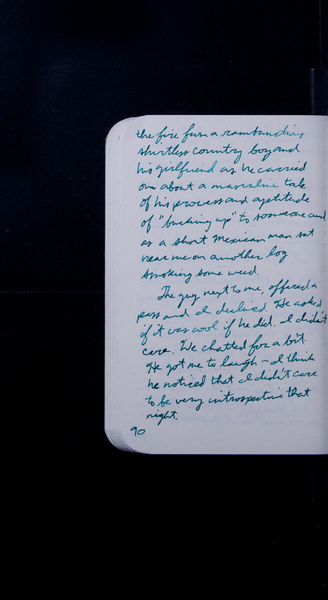 the fire from a rambunctious
shirtless country boy and
his girlfriend as he carried
on about a masculine tale
of his prowess and aptitude
of "bucking up" to someone and
as a short Mexican man sat
near me on another log
smoking some weed.
The guy next to me, offered a
pass and I declined. He asked
if it was cool if he did. I didn't
care. We chatted for a bit.
He got me to laugh - I think
he noticed that I didn't care
to be very introspective that
night.
90